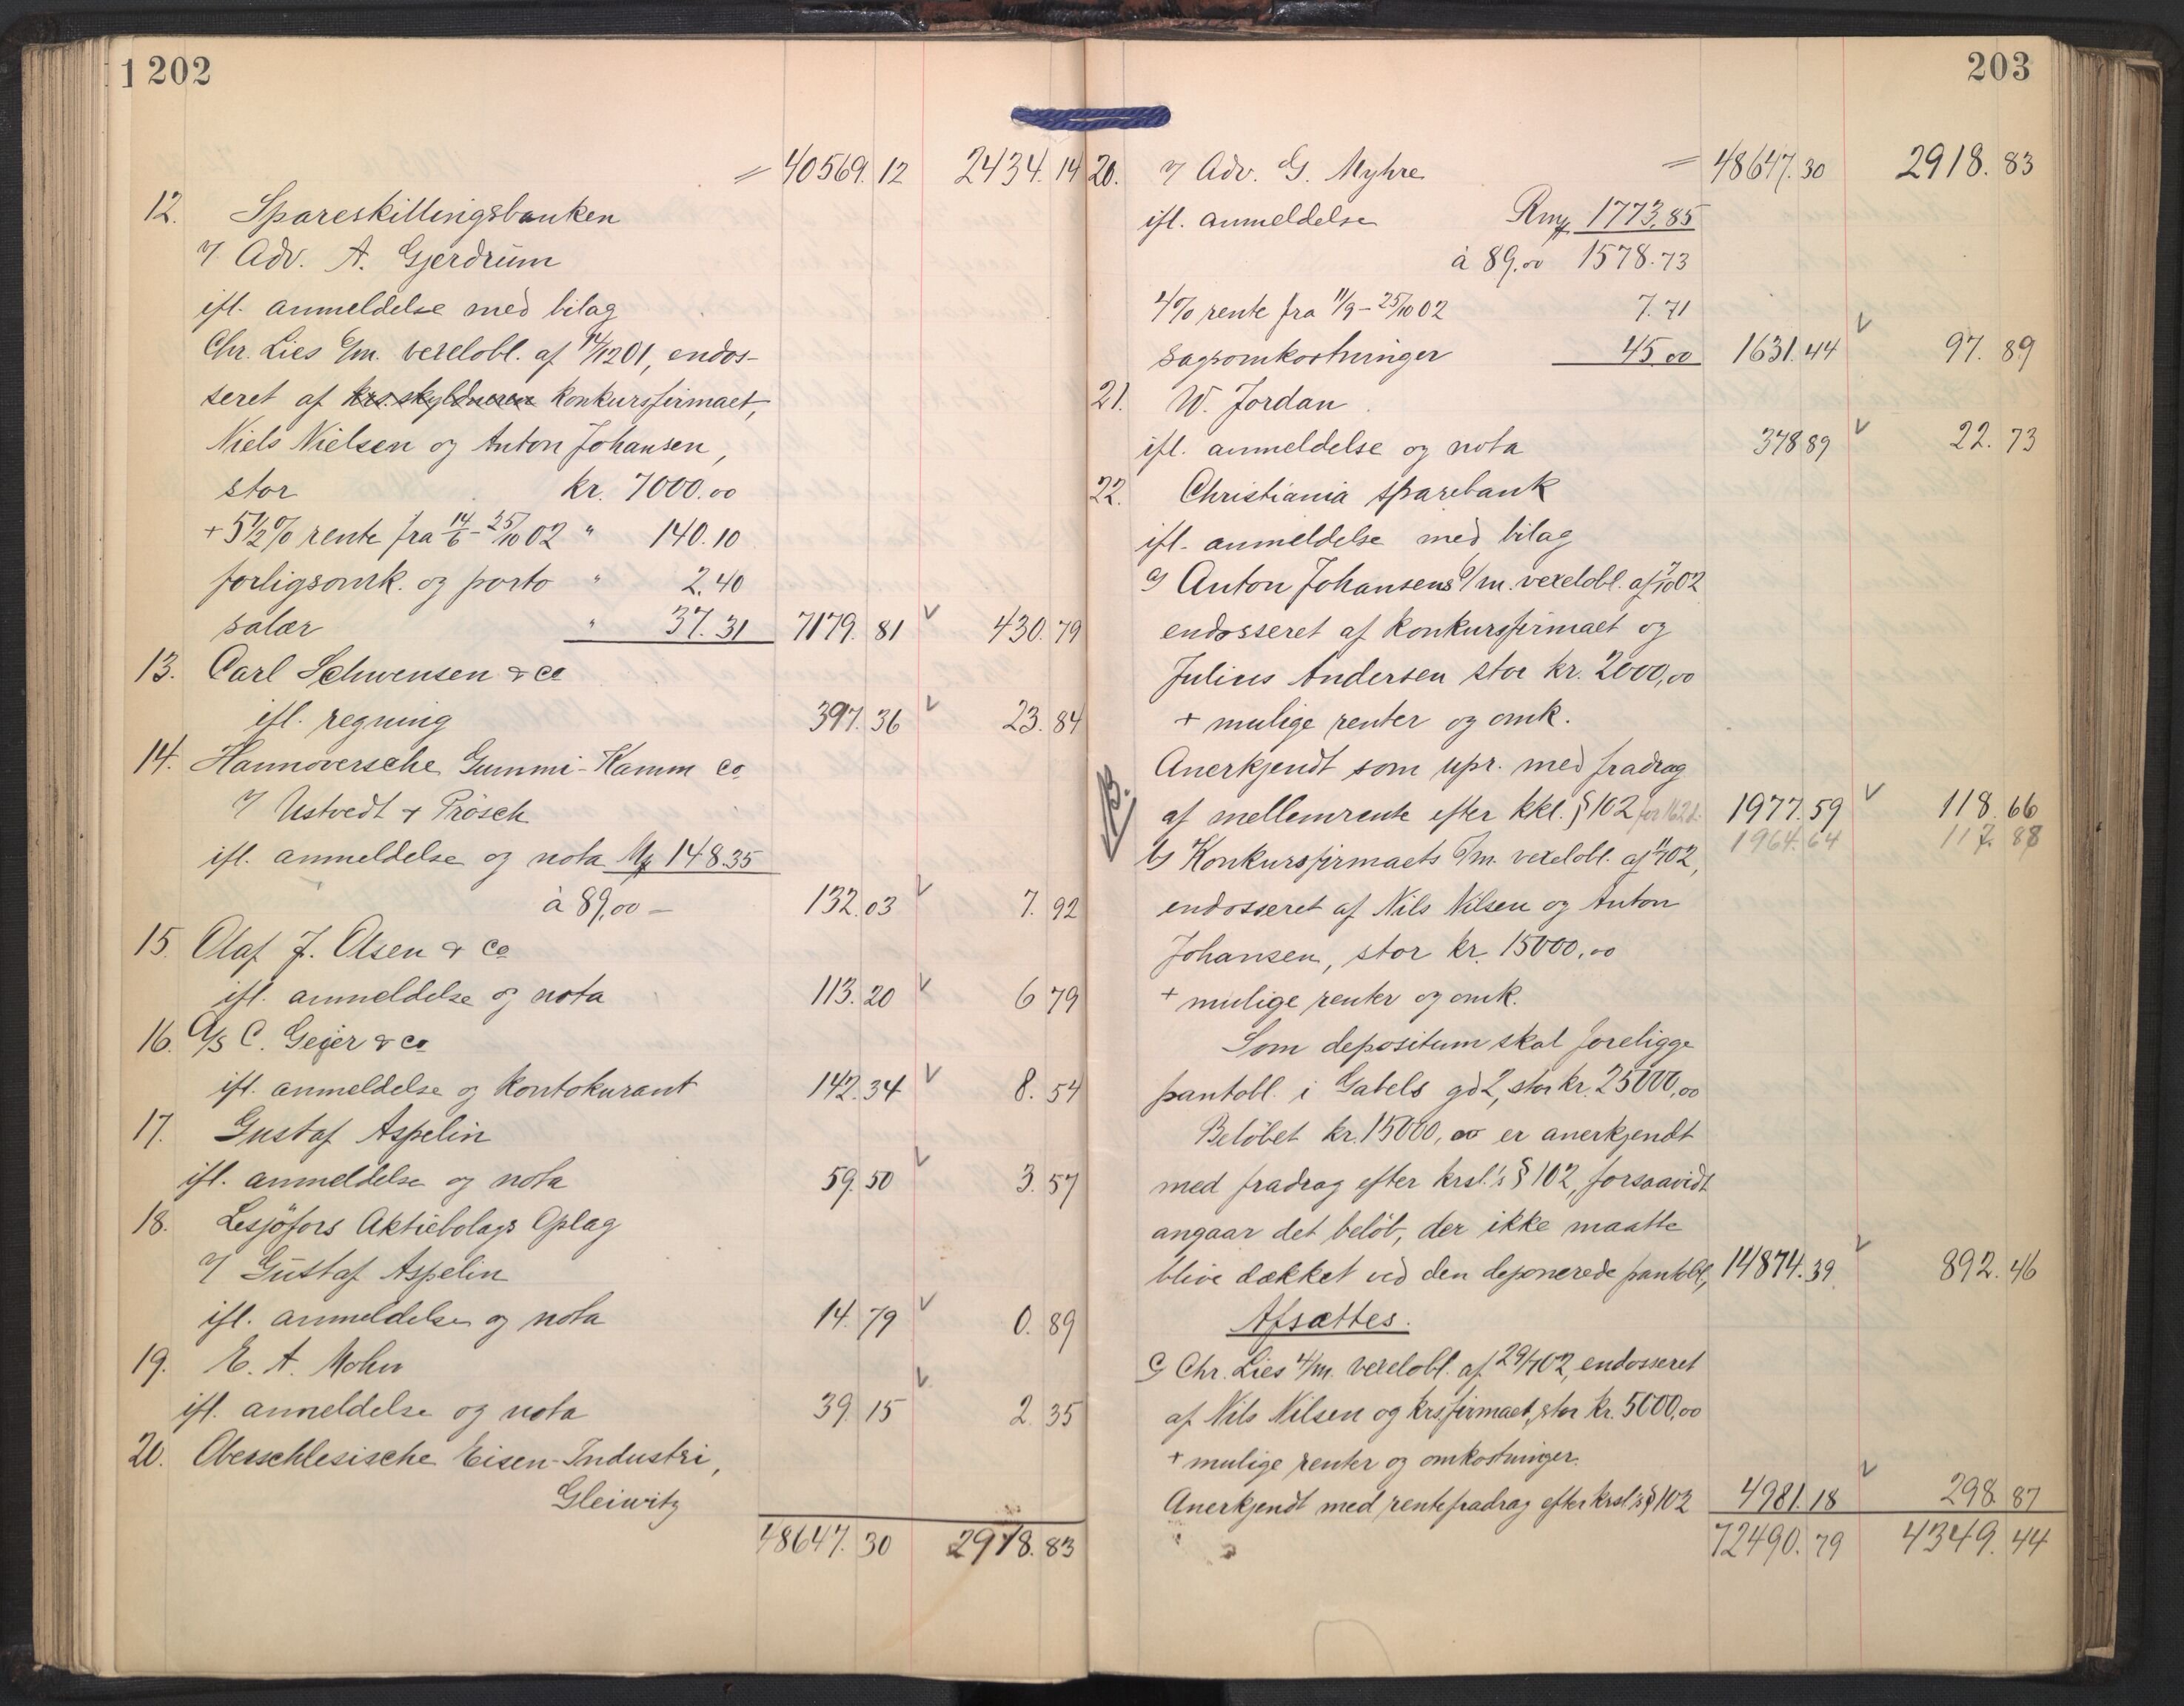 1202
= 40569.12 2434.14
12. Spareskillingsbanken
v/ Adv. A. Gjerdrum
ifl. anmeldelse med bilag
Chr. Lies 6/m. vexelobl. af 14/12 01, endos-
seret af krs.skyldneren konkursfirmaet,
Niels Nielsen og Anton Johansen,
stor kr. 7000.00
+ 5½% rente fra 14/6 - 25/10 02 " 140.10
forligsomk. og porto " 2.40
salær " 37.31 7179.81 v 430.79
13. Carl Schwensen & Co
ifl. regning 397.36 v 23.84
14. Hannoversche Gummi-Kamm Co
v/ Ustvedt & Prösch
ifl. anmeldelse og nota Mk 148.35
à 89,00 — 132.03 v 7.92
15. Olaf J. Olsen & Co
ifl. anmeldelse og nota 113.20 v 6 79
16. A/S C. Geijer & Co
ifl. anmeldelse og kontokurant 142.34 v 8.54
17. Gustaf Aspelin
ifl. anmeldelse og nota 59.50 v 3.57
18. Lesjöfors Aktiebolags Oplag
v/ Gustaf Aspelin
ifl. anmeldelse og nota 14.79 v 0.89
19. E. A. Mohn
ifl. anmeldelse og nota 39.15 v 2.35
20. Oberschlesische Eisen-Industri,
Gleiwitz
48647.30 2918.83
203
20. v/ Adv. G. Myhre = 48647.30 2918.83
ifl. anmeldelse Rmk 1773,85
à 89.00 1578.73
4% rente fra 11/9 - 25/10 02 7.71
sagsomkostninger 45.00 1631.44 v 97.89
21. W. Jordan
ifl. anmeldelse og nota 378 89 v 22.73
22. Christiania sparebank
ifl. anmeldelse med bilag
a) Anton Johansens 6/m. vexelobl. af 7/10 02
endosseret af konkursfirmaet og
Julius Andersen stor kr. 2000,00
+ mulige renter og omk.
Anerkjendt som upr. med fradrag
af mellemrente efter kkl. § 102 for 162 d. 1977.59 v 118.66
1964.64 117.88
b) Konkursfirmaets 6/m. vexelobl. af 11/7 02,
endosseret af Nils Nilsen og Anton
Johansen, stor kr. 15000.00
+ mulige renter og omk.
Som depositum skal foreligge
pantobl. i Gabels gd 2, stor kr. 25000,00
Beløbet kr. 15000,00 er anerkjendt
med fradrag efter krsl.'s § 102, forsaavidt
angaar det beløb, der ikke maatte
blive dækket ved den deponerede pantobl., 14874.39 v 892.46
Afsættes.
c) Chr. Lies 4/m. vexelobl. af 29/7 02, endosseret
af Nils Nilsen og krs.firmaet, stor kr. 5000,00
+ mulige renter og omkostninger.
Anerkjendt med rentefradrag efter krsl.'s § 102 4981.18 v 298.87
72490.79 4349.44